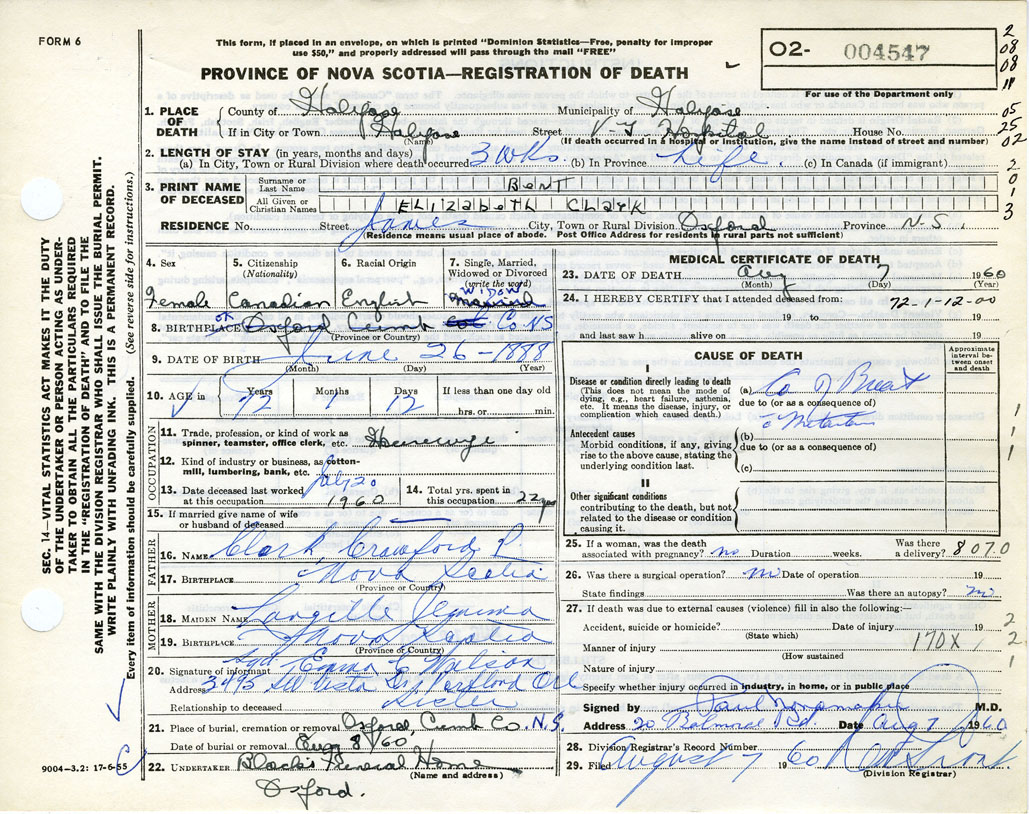 FORM 6
This form, if placed in an envelope, on which is printed "Dominion Statistics—Free, penalty for improper
use $50," and properly addressed will pass through the mail "FREE"
PROVINCE OF NOVA SCOTIA—REGISTRATION OF DEATH
O2- 004547
For use of the Department only
2
08
08
11
05
25
02
2
0
1
3
1. PLACE OF DEATH
County of Halifax Municipality of Halifax
If in City or Town Halifax Street V-G Hospital House No.
(Name) (If death occurred in a hospital or institution, give the name instead of street and number)
2. LENGTH OF STAY (in years, months and days)
(a) In City, Town or Rural Division where death occurred 3 wks (b) In Province Life (c) In Canada (if immigrant)
3. PRINT NAME OF DECEASED
Surname or Last Name BENT
All Given or Christian Names ELIZABETH Clark
RESIDENCE No. Street James City, Town or Rural Division Oxford Province N-S.
(Residence means usual place of abode. Post Office Address for residents in rural parts not sufficient)
4. Sex Female
5. Citizenship (Nationality) Canadian
6. Racial Origin English
7. Single, Married, Widowed or Divorced (write the word) WIDOW Married
8. BIRTHPLACE Oxford Cumb Co NS
(Province or Country)
9. DATE OF BIRTH June 26-1888
(Month) (Day) (Year)
10. AGE in Years 72 Months 1 Days 12 If less than one day old hrs. or min.
OCCUPATION
11. Trade, profession, or kind of work as spinner, teamster, office clerk, etc. Housewife
12. Kind of industry or business, as cotton-mill, lumbering, bank, etc.
13. Date deceased last worked at this occupation July 20 1960
14. Total yrs. spent in this occupation 22 yrs
15. If married give name of wife or husband of deceased
FATHER
16. NAME Clark, Crawford P
17. BIRTHPLACE Nova Scotia
(Province or Country)
MOTHER
18. MAIDEN NAME Langille Jemima
19. BIRTHPLACE Nova Scotia
(Province or Country)
20. Signature of informant Sgd Emma C Wilson
Address 3495
Relationship to deceased Sister
21. Place of burial, cremation or removal Oxford, Cumb Co. N.S.
Date of burial or removal Aug 8/60
22. UNDERTAKER Black's Funeral Home
(Name and address)
Oxford.
9004-3.2: 17-6-55
MEDICAL CERTIFICATE OF DEATH
23. DATE OF DEATH Aug 7 1960
(Month) (Day) (Year)
24. I HEREBY CERTIFY that I attended deceased from: 72-1-12-00
19 to 19
and last saw h alive on 19
CAUSE OF DEATH
Approximate interval between onset and death
I
Disease or condition directly leading to death
(This does not mean the mode of dying, e.g., heart failure, asthenia, etc. It means the disease, injury, or complication which caused death.)
(a) Ca of Breast
due to (or as a consequence of)
Antecedent causes
Morbid conditions, if any, giving rise to the above cause, stating the underlying condition last.
(b)
due to (or as a consequence of)
(c)
II
Other significant conditions contributing to the death, but not related to the disease or condition causing it.
1
1
1
25. If a woman, was the death associated with pregnancy? no Duration weeks. Was there a delivery? 8070
26. Was there a surgical operation? no Date of operation 19
State findings Was there an autopsy? no
27. If death was due to external causes (violence) fill in also the following:—
Accident, suicide or homicide? Date of injury 19
(State which)
Manner of injury 170X
(How sustained
Nature of injury
Specify whether injury occurred in industry, in home, or in public place
2
2
1
Signed by Paul M.D.
Address 20 Balmoral Rd. Date Aug 7 1960
28. Division Registrar's Record Number
29. Filed August 7 1960
(Division Registrar)
SEC. 14—VITAL STATISTICS ACT MAKES IT THE DUTY
OF THE UNDERTAKER OR PERSON ACTING AS UNDER-
TAKER TO OBTAIN ALL THE PARTICULARS REQUIRED
IN THE "REGISTRATION OF DEATH" AND FILE THE
SAME WITH THE DIVISION REGISTRAR WHO SHALL ISSUE THE BURIAL PERMIT.
WRITE PLAINLY WITH UNFADING INK. THIS IS A PERMANENT RECORD.
Every item of information should be carefully supplied. (See reverse side for instructions.)